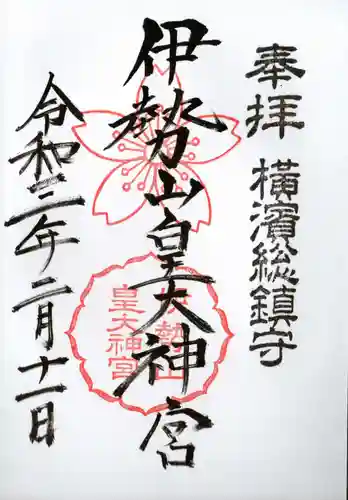 奉拝 横濱総鎮守
伊勢山皇大神宮
伊勢山
皇大神宮
令和三年二月十一日